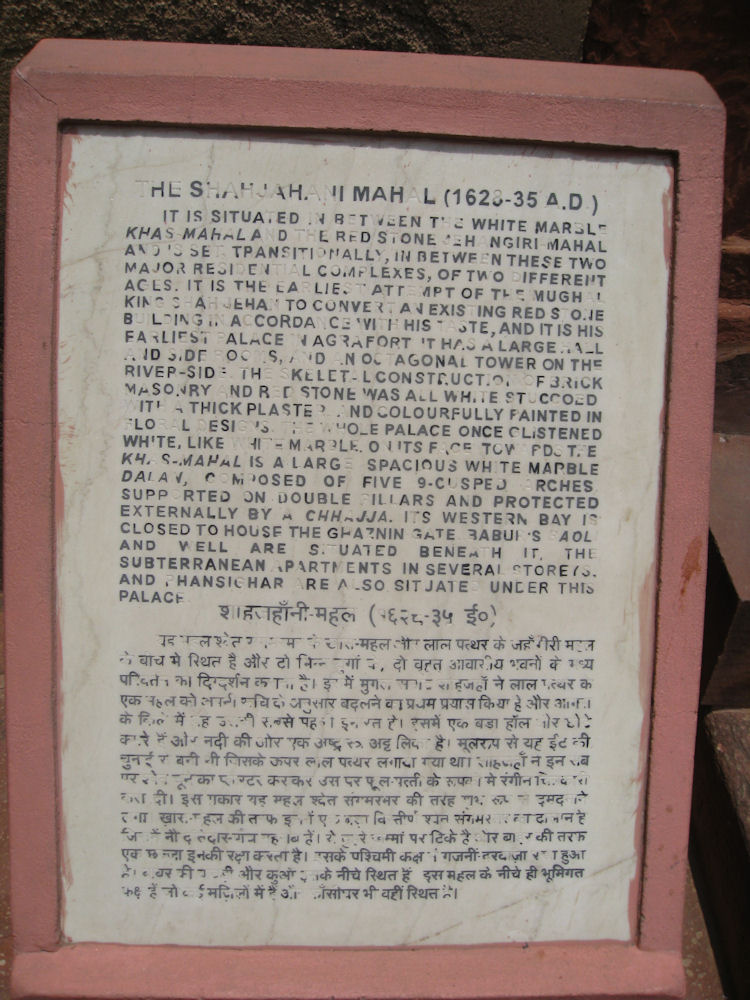 THE SHAHJAHANI MAHAL (1628-35 A.D.)
IT IS SITUATED IN BETWEEN THE WHITE MARBLE
KHAS-MAHAL AND THE RED STONE JEHANGIRI-MAHAL
AND IS SET TRANSITIONALLY, IN BETWEEN THESE TWO
MAJOR RESIDENTIAL COMPLEXES, OF TWO DIFFERENT
AGES. IT IS THE EARLIEST ATTEMPT OF THE MUGHAL
KING SHAH JEHAN TO CONVERT AN EXISTING RED STONE
BUILDING IN ACCORDANCE WITH HIS TASTE, AND IT IS HIS
EARLIEST PALACE IN AGRA FORT IT HAS A LARGE HALL
AND SIDE ROOMS, AND AN OCTAGONAL TOWER ON THE
RIVER-SIDE. THE SKELETAL CONSTRUCTION OF BRICK
MASONRY AND RED STONE WAS ALL WHITE STUCCOED
WITH A THICK PLASTER AND COLOURFULLY PAINTED IN
FLORAL DESIGNS. THE WHOLE PALACE ONCE GLISTENED
WHITE, LIKE WHITE MARBLE. ON ITS FACE TOWARDS THE
KHAS-MAHAL IS A LARGE SPACIOUS WHITE MARBLE
DALAN, COMPOSED OF FIVE 9-CUSPED ARCHES
SUPPORTED ON DOUBLE PILLARS AND PROTECTED
EXTERNALLY BY A CHHAJJA. ITS WESTERN BAY IS
CLOSED TO HOUSE THE GHAZNIN GATE. BABUR'S BAOLI
AND WELL ARE SITUATED BENEATH IT. THE
SUBTERRANEAN APARTMENTS IN SEVERAL STOREYS.
AND PHANSIGHAR ARE ALSO SITUATED UNDER THIS
PALACE.
शाहजहाँनी-महल (१६२८-३५ ई०)
यह महल श्वेत खास-महल और लाल पत्थर के जहाँगीरी महल
के बीच में स्थित है और दो भिन्न युगों के, दो वृहत आवासीय भवनों के मध्य
परिवर्तन का दिग्दर्शन कराता है। इसमें मुगल सम्राट शाहजहाँ ने लाल पत्थर के
एक महल को अपनी रुचि के अनुसार बदलने का प्रथम प्रयास किया है और आगरा
के किले में यह उसकी सबसे पहली इमारत है। इसमें एक बडा हॉल और छोटे
कमरे हैं और नदी की ओर एक अष्ट है। मूलरूप से यह ईंट की
चुनाई से बनी थी जिसके ऊपर लाल पत्थर लगाया गया था। शाहजहाँ ने इन सब
पर मोटे चूने का प्लास्टर करकर उस पर फूल-पत्ती के रूपों में रंगीन चित्रकारी
करा दी। इस प्रकार यह महल श्वेत संगमरमर की तरह
खास-महल की तरफ इसमें एक संगमरमर का दालान है
जिसमें नौ दांतेदार हैं। ये दुहरे खम्भों पर टिके हैं और बाहर की तरफ
एक छज्जा इनकी रक्षा करता है। इसके पश्चिमी कक्ष में गजनीं दरवाज़ा रखा हुआ
है। बाबर की बावली और कुआँ इसके नीचे स्थित हैं इस महल के नीचे ही भूमिगत
कक्ष हैं जो कई मंज़िलों में हैं और फाँसीघर भी वहीं स्थित है।